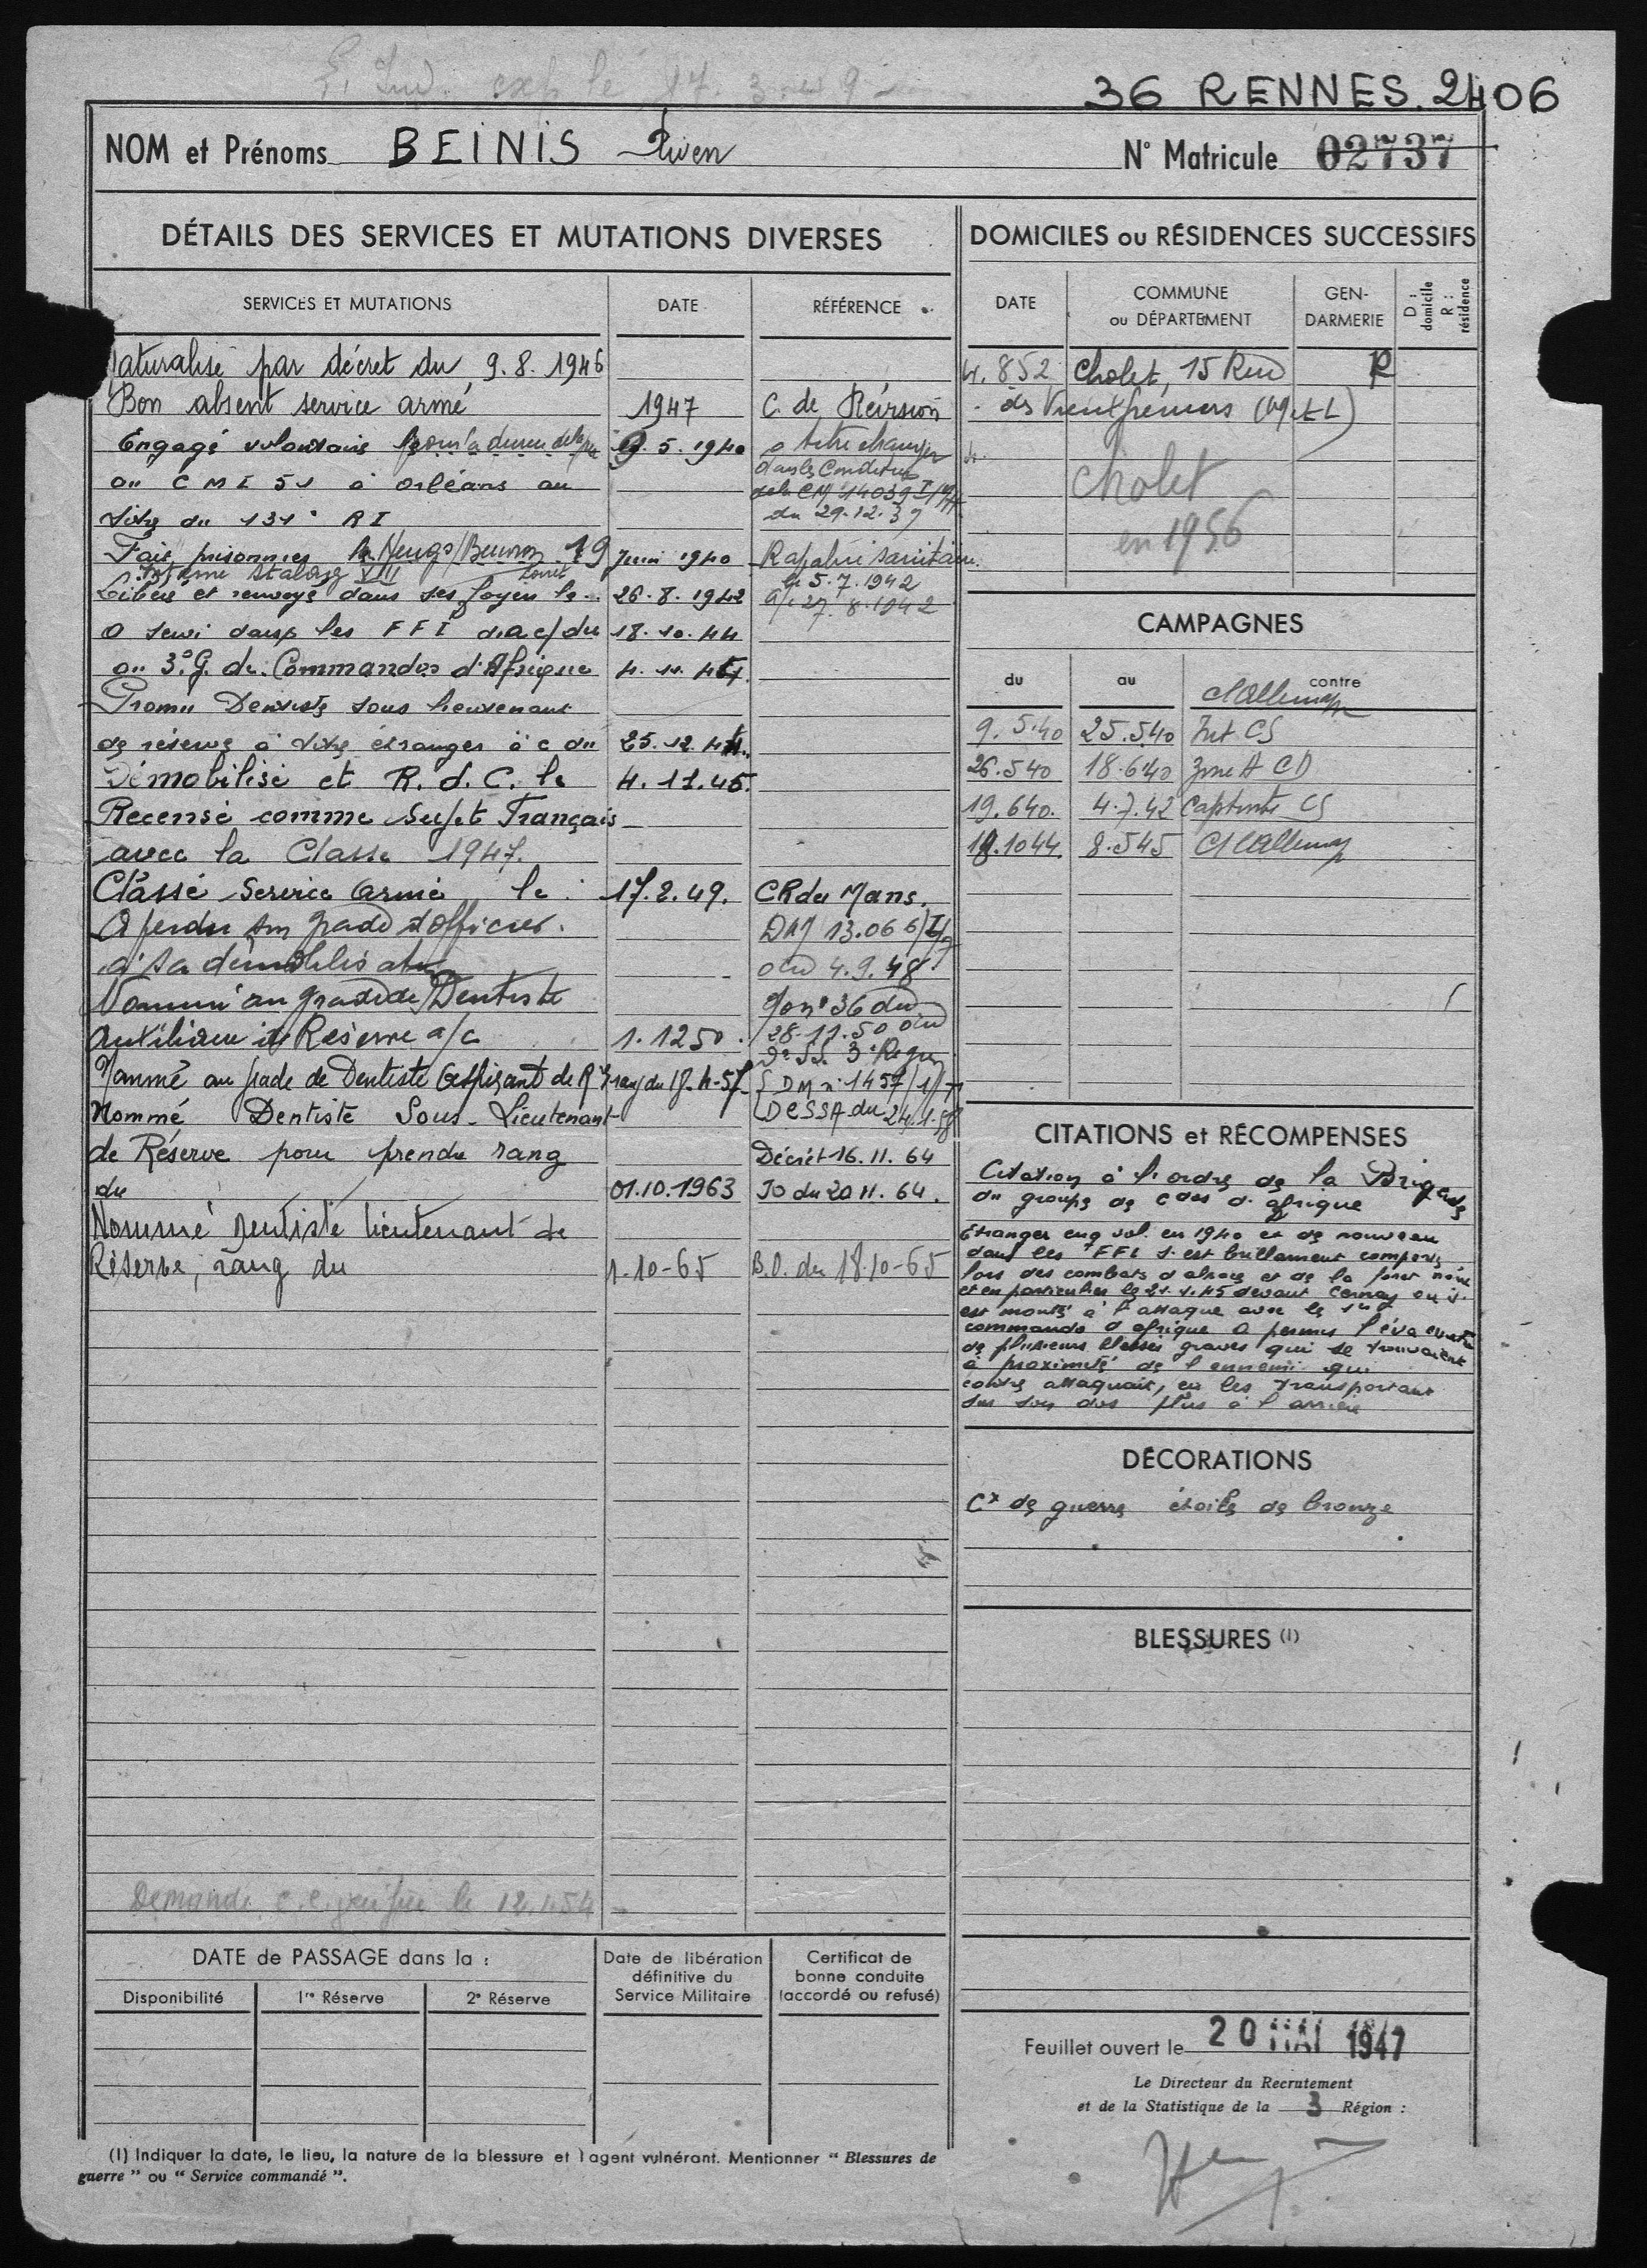 exp le 17. 3. 49
36 RENNES. 2406
NOM et Prénoms BEINIS Riven
N° Matricule 02737
DÉTAILS DES SERVICES ET MUTATIONS DIVERSES
SERVICES ET MUTATIONS DATE RÉFÉRENCE
naturalisé par décret du 9.8.1946
Bon absent service armé 1947 C. de Révision
Engagé volontaire pour la durée de la 9.5.1940 a titre étranger
dans les Conditions
au CMI 51 à Orléans au de la CM 14039 I/
titre du 131° RI du 29.12.39
Fait prisonnier 19 Juin 1940 Rapatrié sanitaire
Interné Stalag VIII Loiret le 5.7.1942
Libéré et renvoyé dans ses foyers le 26.8.1942 a/c 27.8.1942
a servi dans les FFI d. a c/du 18.10.44
au 3°G. de Commandos d'Afrique 4.11.44
Promu Dentiste sous lieutenant
de réserve à titre étranger à c du 25.12.44.
Démobilisé et R.d.C. le 4.11.45.
Recensé comme Sujet Français
avec la Classe 1947.
Classé Service Armé le 17.2.49. CR du Mans.
A perdu son grade d'officier DM 13.066
à sa démobilisation du 4.9.48
Nommé au grade de Dentiste n° 36 du
Auxiliaire de Réserve a/c 1.12 50 28.11.50
D° SS. 3° Region
Nommé au grade de Dentiste Aspirant de Rve rang du 18-4-57 DM n° 1457/1
Nommé Dentiste Sous-Lieutenant DCSSA du 24.1.58
de Réserve pour prendre rang Décrét 16.11.64
du 01.10.1963 JO du 20 11.64.
Nommé Dentiste lieutenant de
Réserve, rang du 1-10-65 B.O. du 18-10-65
Demande le 12.1.54
DATE de PASSAGE dans la :
Disponibilité 1re Réserve 2e Réserve
Date de libération
définitive du
Service Militaire
Certificat de
bonne conduite
(accordé ou refusé)
(1) Indiquer la date, le lieu, la nature de la blessure et l'agent vulnérant. Mentionner “ Blessures de
guerre ” ou “ Service commandé ”.
DOMICILES ou RÉSIDENCES SUCCESSIFS
DATE COMMUNE ou DÉPARTEMENT GEN-DARMERIE D : domicile R : résidence
4.852 Cholet, 15 Rue R
des Vieux (M et L)
Cholet
en 1956
CAMPAGNES
du au contre
C/Allemagne
9.5.40 25.540 Int. CS
26.540 18.640 Zone A CD
19.640. 4.7.42 Captivité CS
18.1044. 8.545 C/Allemagne
CITATIONS et RÉCOMPENSES
Citation à l'ordre de la Brigade
du groupe de Cdos d'afrique
Etranger eng. vol. en 1940 et de nouveau
dans les FFI s'est brillament comporté
lors des combats d'alsace et de la foret noire
et en particulier le 21.1.45 devant Cernay ou il
est monté à l'attaque avec le 1er
commando d'afrique a permis l'évacuation
de plusieurs blessés graves qui se trouvaient
à proximité de l'ennemi qui
contre attaquait, en les transportant
sur son dos plus à l'arrière
DÉCORATIONS
Cx de guerre étoile de bronze
BLESSURES (1)
Feuillet ouvert le 20 MAI 1947
Le Directeur du Recrutement
et de la Statistique de la 3 Région :